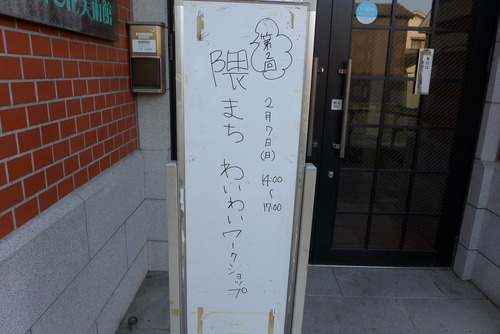 第2回
隈まち わいわいワークショップ
2月7日(日) 14:00〜17:00
美術館